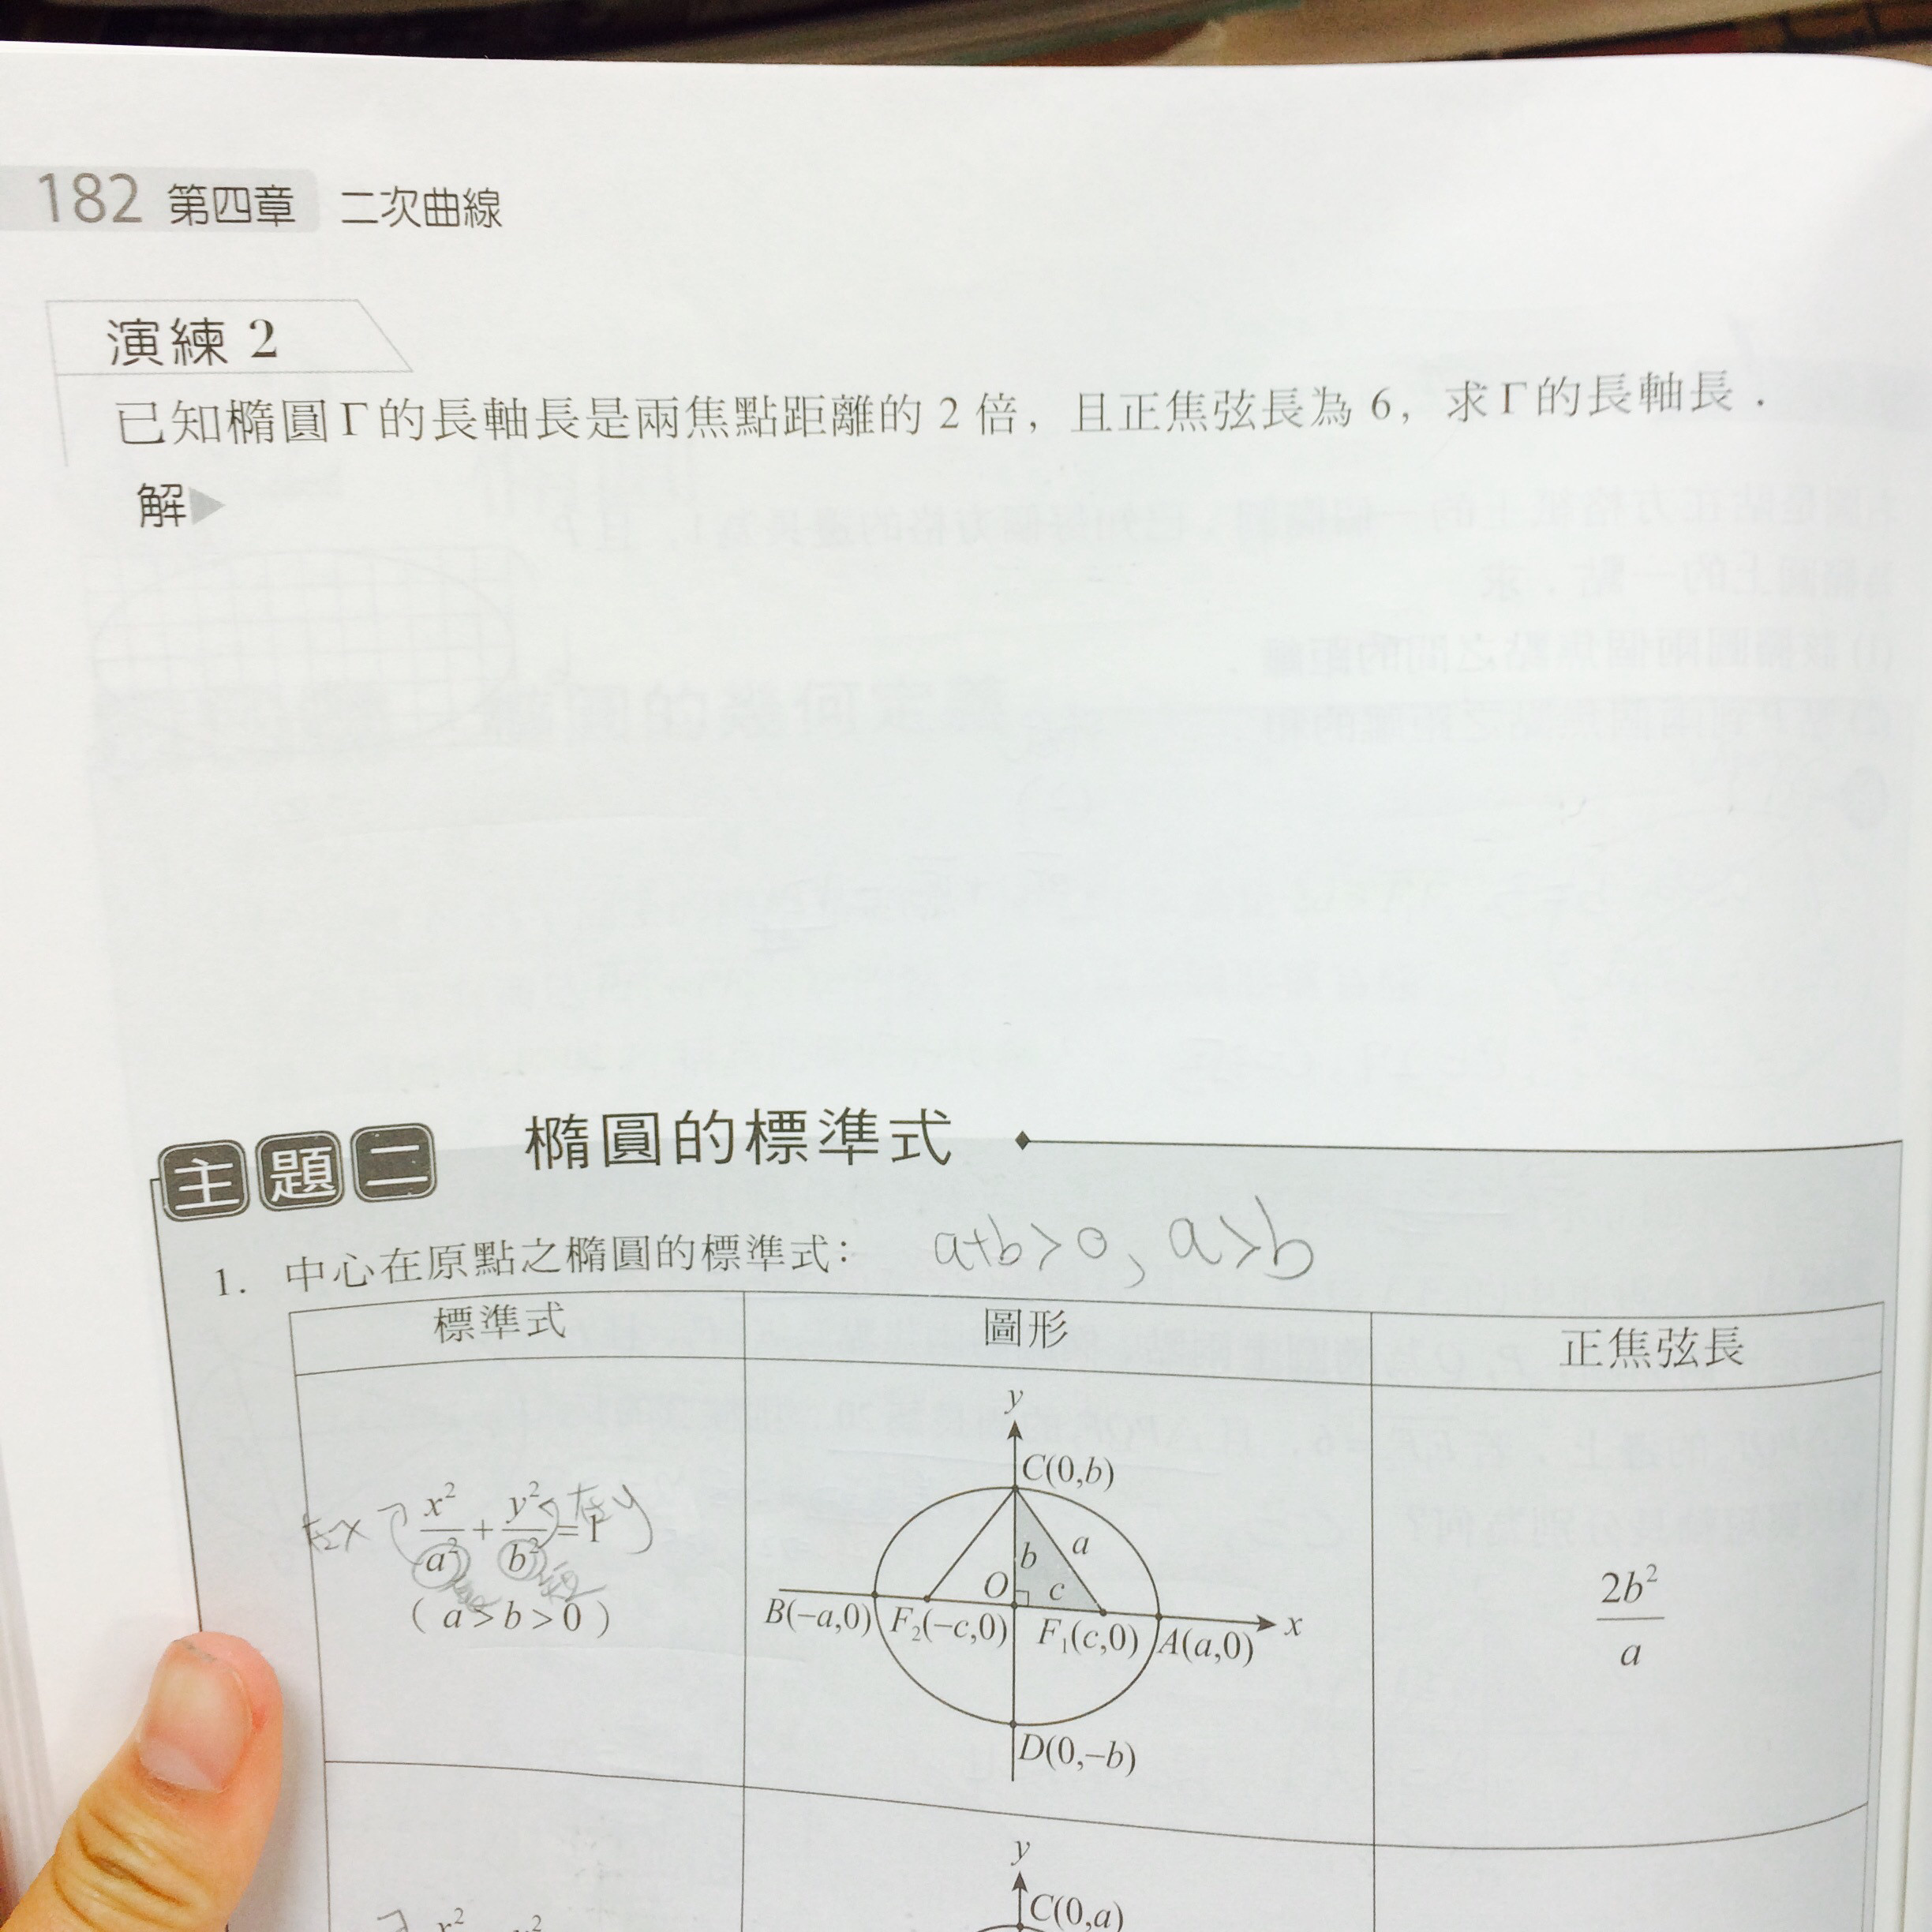 182 第四章 二次曲線
演練 2
已知橢圓Γ的長軸長是兩焦點距離的 2 倍，且正焦弦長為 6，求Γ的長軸長．
解
主題二 橢圓的標準式
1. 中心在原點之橢圓的標準式： a+b>0, a>b
標準式 圖形 正焦弦長
y
C(0,b)
在x x²/a² + y²/b² = 1 在y
b a
O c
2b²/a
(a>b>0)
B(−a,0) F₂(−c,0) F₁(c,0) A(a,0) x
D(0,−b)
y
C(0,a)